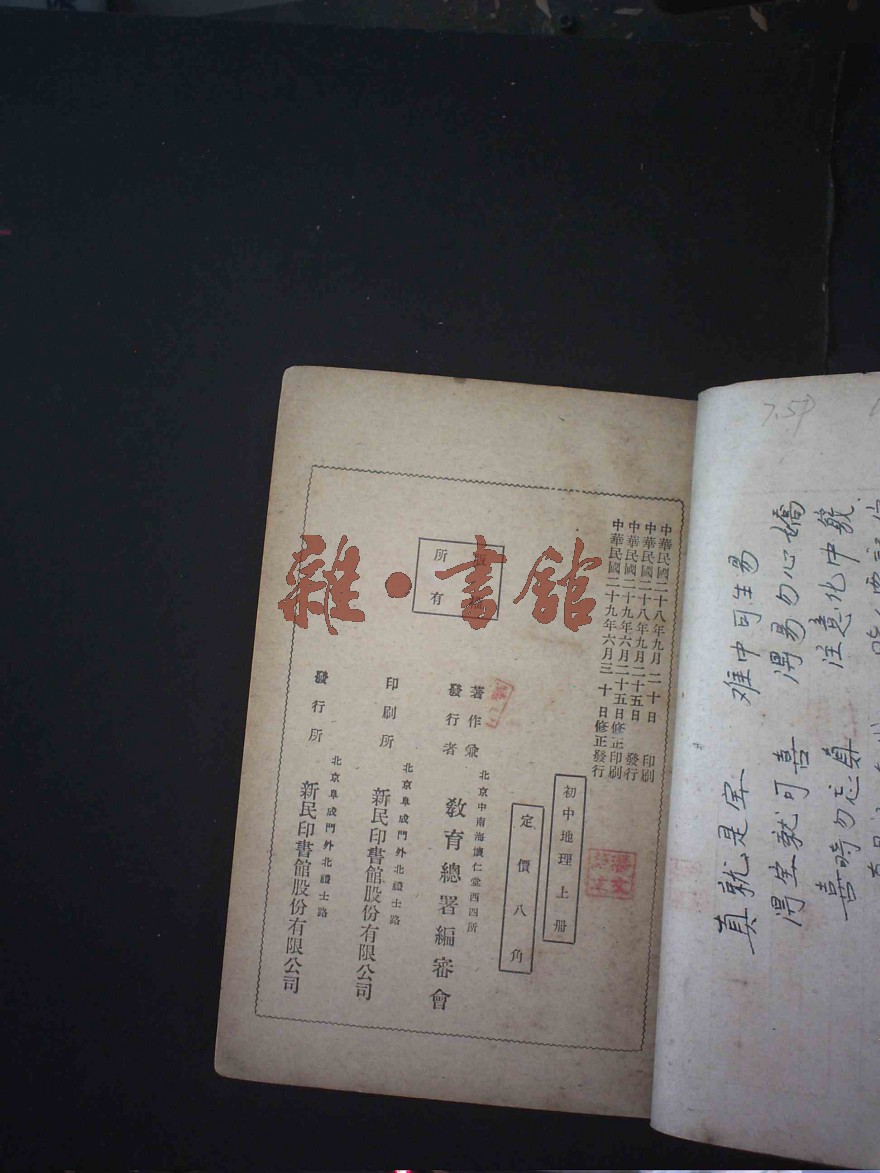 中華民國二十八年九月二十日印刷
中華民國二十八年九月二十五日發行
中華民國二十九年六月二十五日修正印刷
中華民國二十九年六月三十日修正發行
初中地理上册
定價八角
版權
所有
著作兼
發行者
北京中南海懷仁堂西四所
教育總署編審會
印刷所
北京阜成門外北禮士路
新民印書館股份有限公司
發行所
北京阜成門外北禮士路
新民印書館股份有限公司
雜·書館
7.5
注意化中
喜時勿忘
得易勿心
就可喜
难中可生易
真就是宝